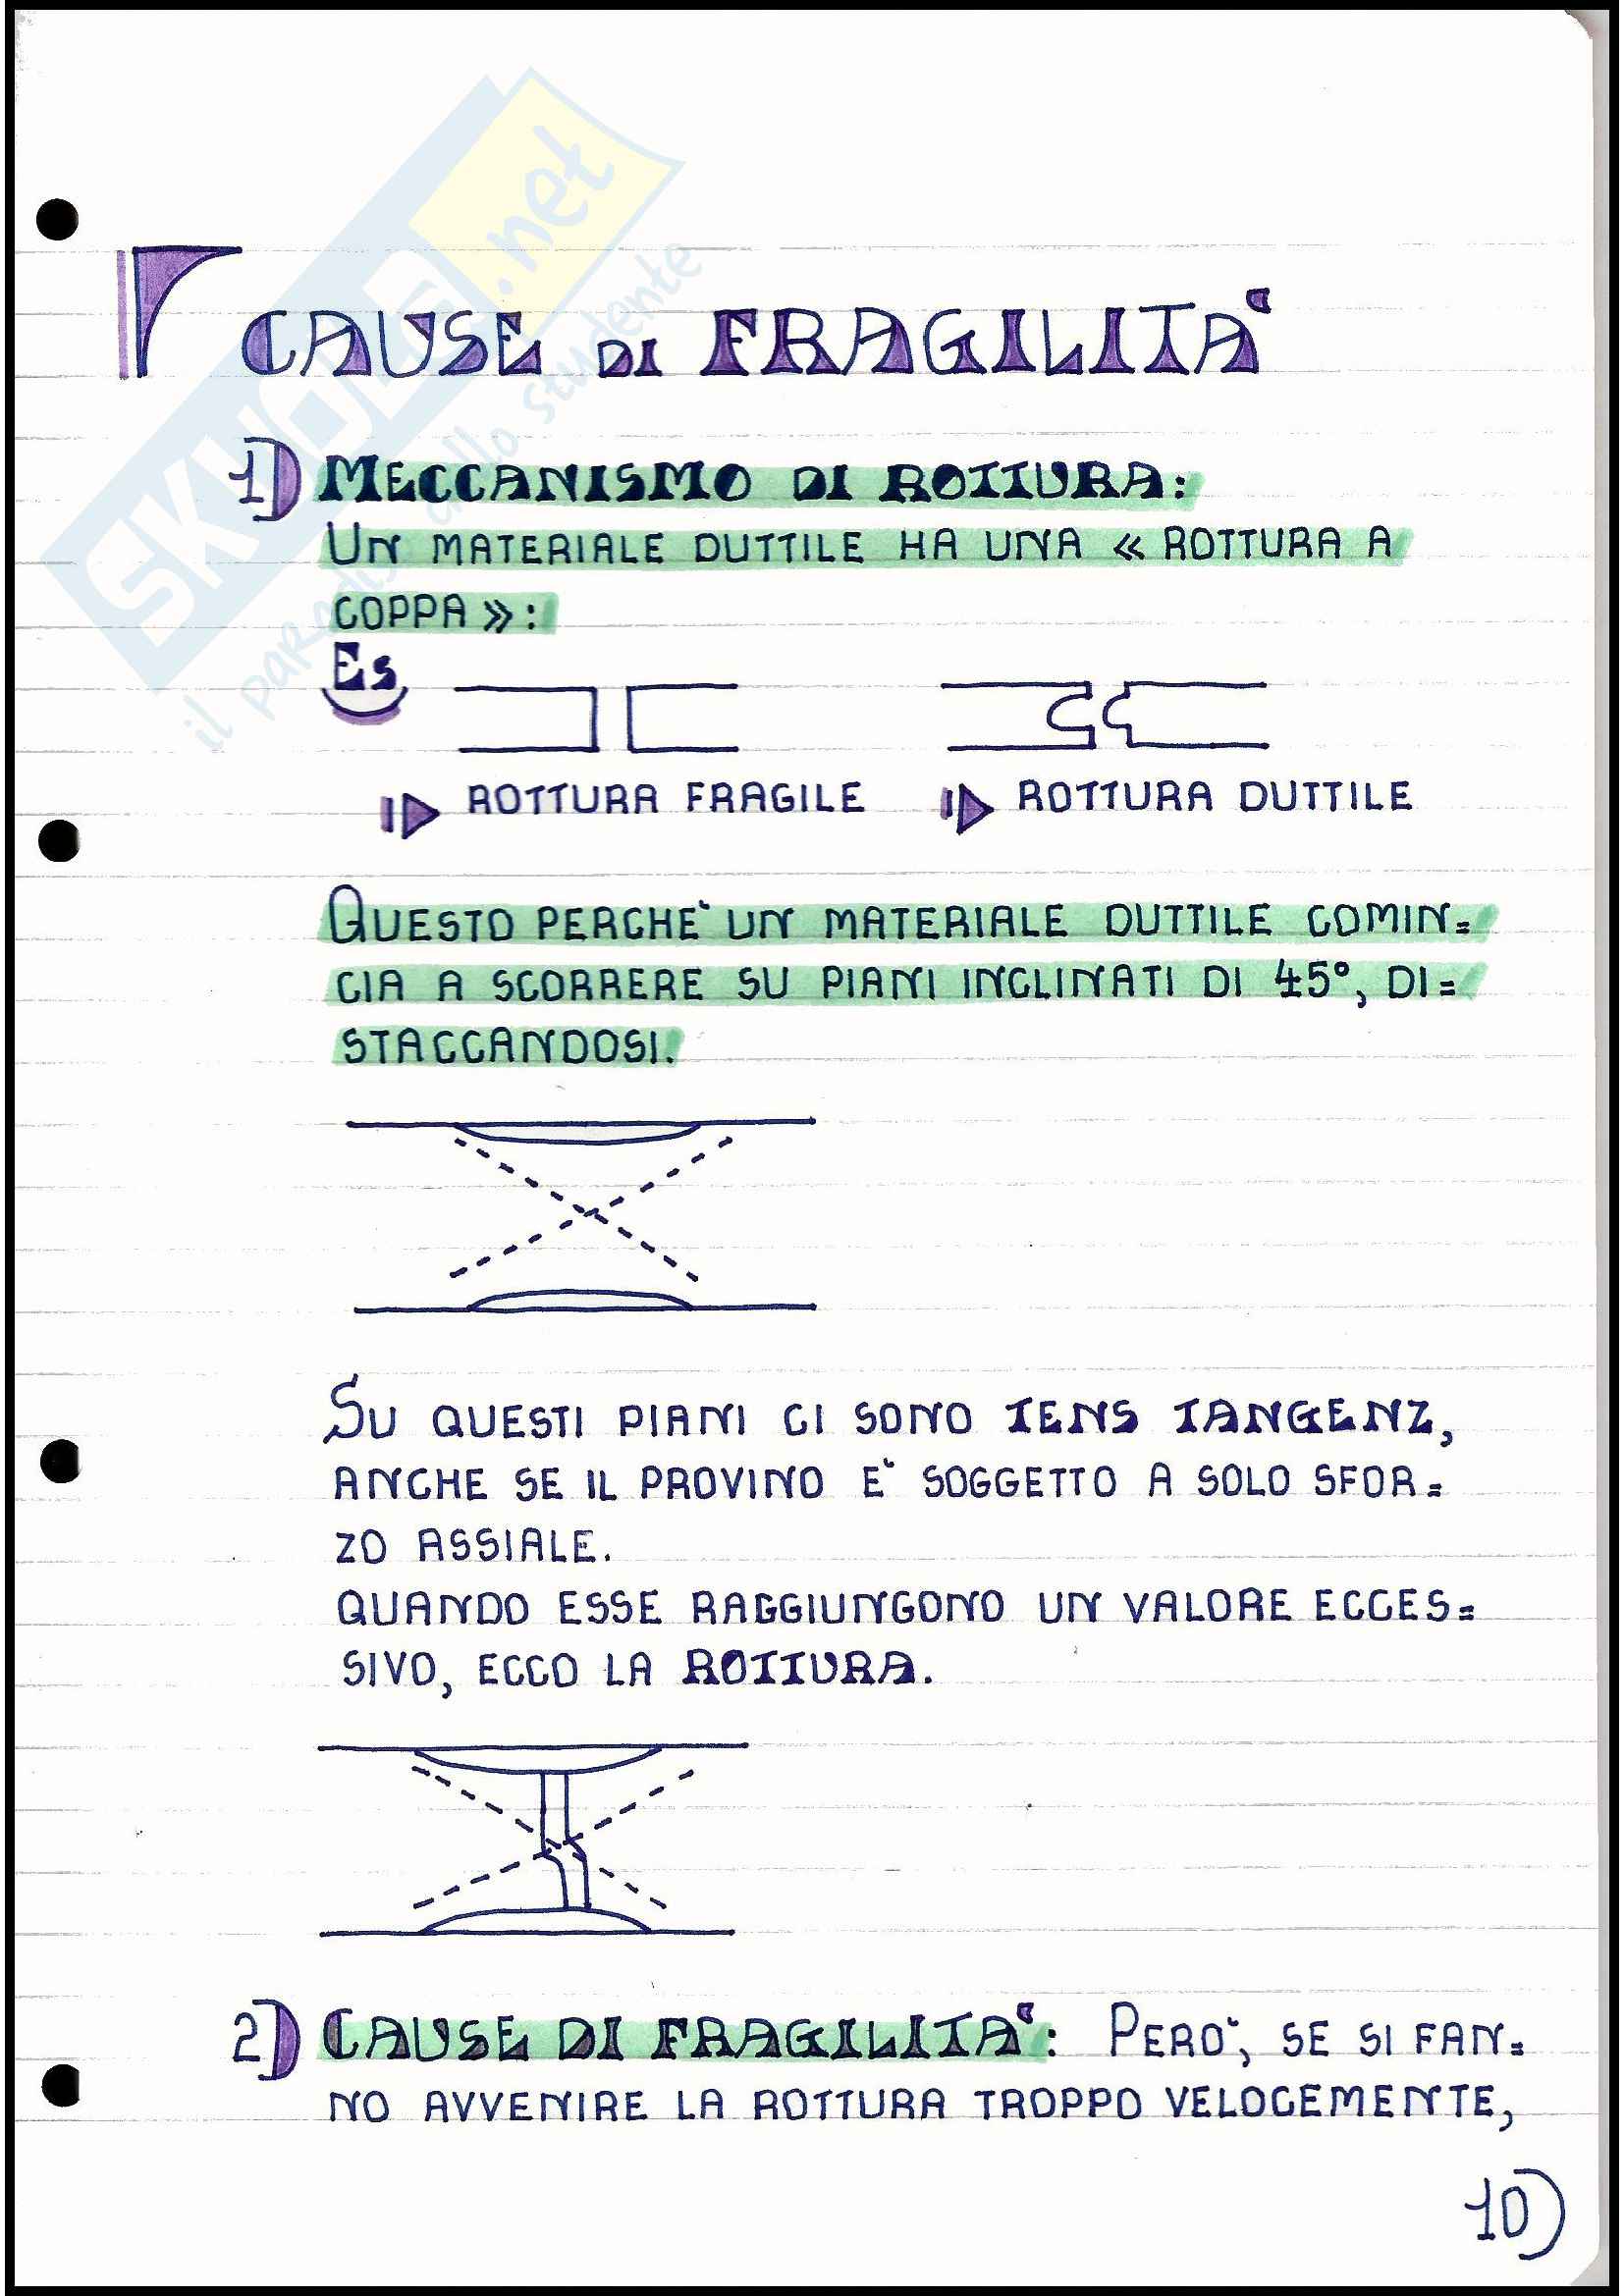 SKUOLA.net
il paradiso dello studente
CAUSE DI FRAGILITA'
1) MECCANISMO DI ROTTURA:
UN MATERIALE DUTTILE HA UNA « ROTTURA A
COPPA »:
ES
ROTTURA FRAGILE ROTTURA DUTTILE
QUESTO PERCHE' UN MATERIALE DUTTILE COMIN=
CIA A SCORRERE SU PIANI INCLINATI DI 45°, DI=
STACCANDOSI.
SU QUESTI PIANI CI SONO TENS TANGENZ,
ANCHE SE IL PROVINO E' SOGGETTO A SOLO SFOR=
ZO ASSIALE.
QUANDO ESSE RAGGIUNGONO UN VALORE ECCES=
SIVO, ECCO LA ROTTURA.
2) CAUSE DI FRAGILITA': PERO', SE SI FAN=
NO AVVENIRE LA ROTTURA TROPPO VELOCEMENTE,
10)